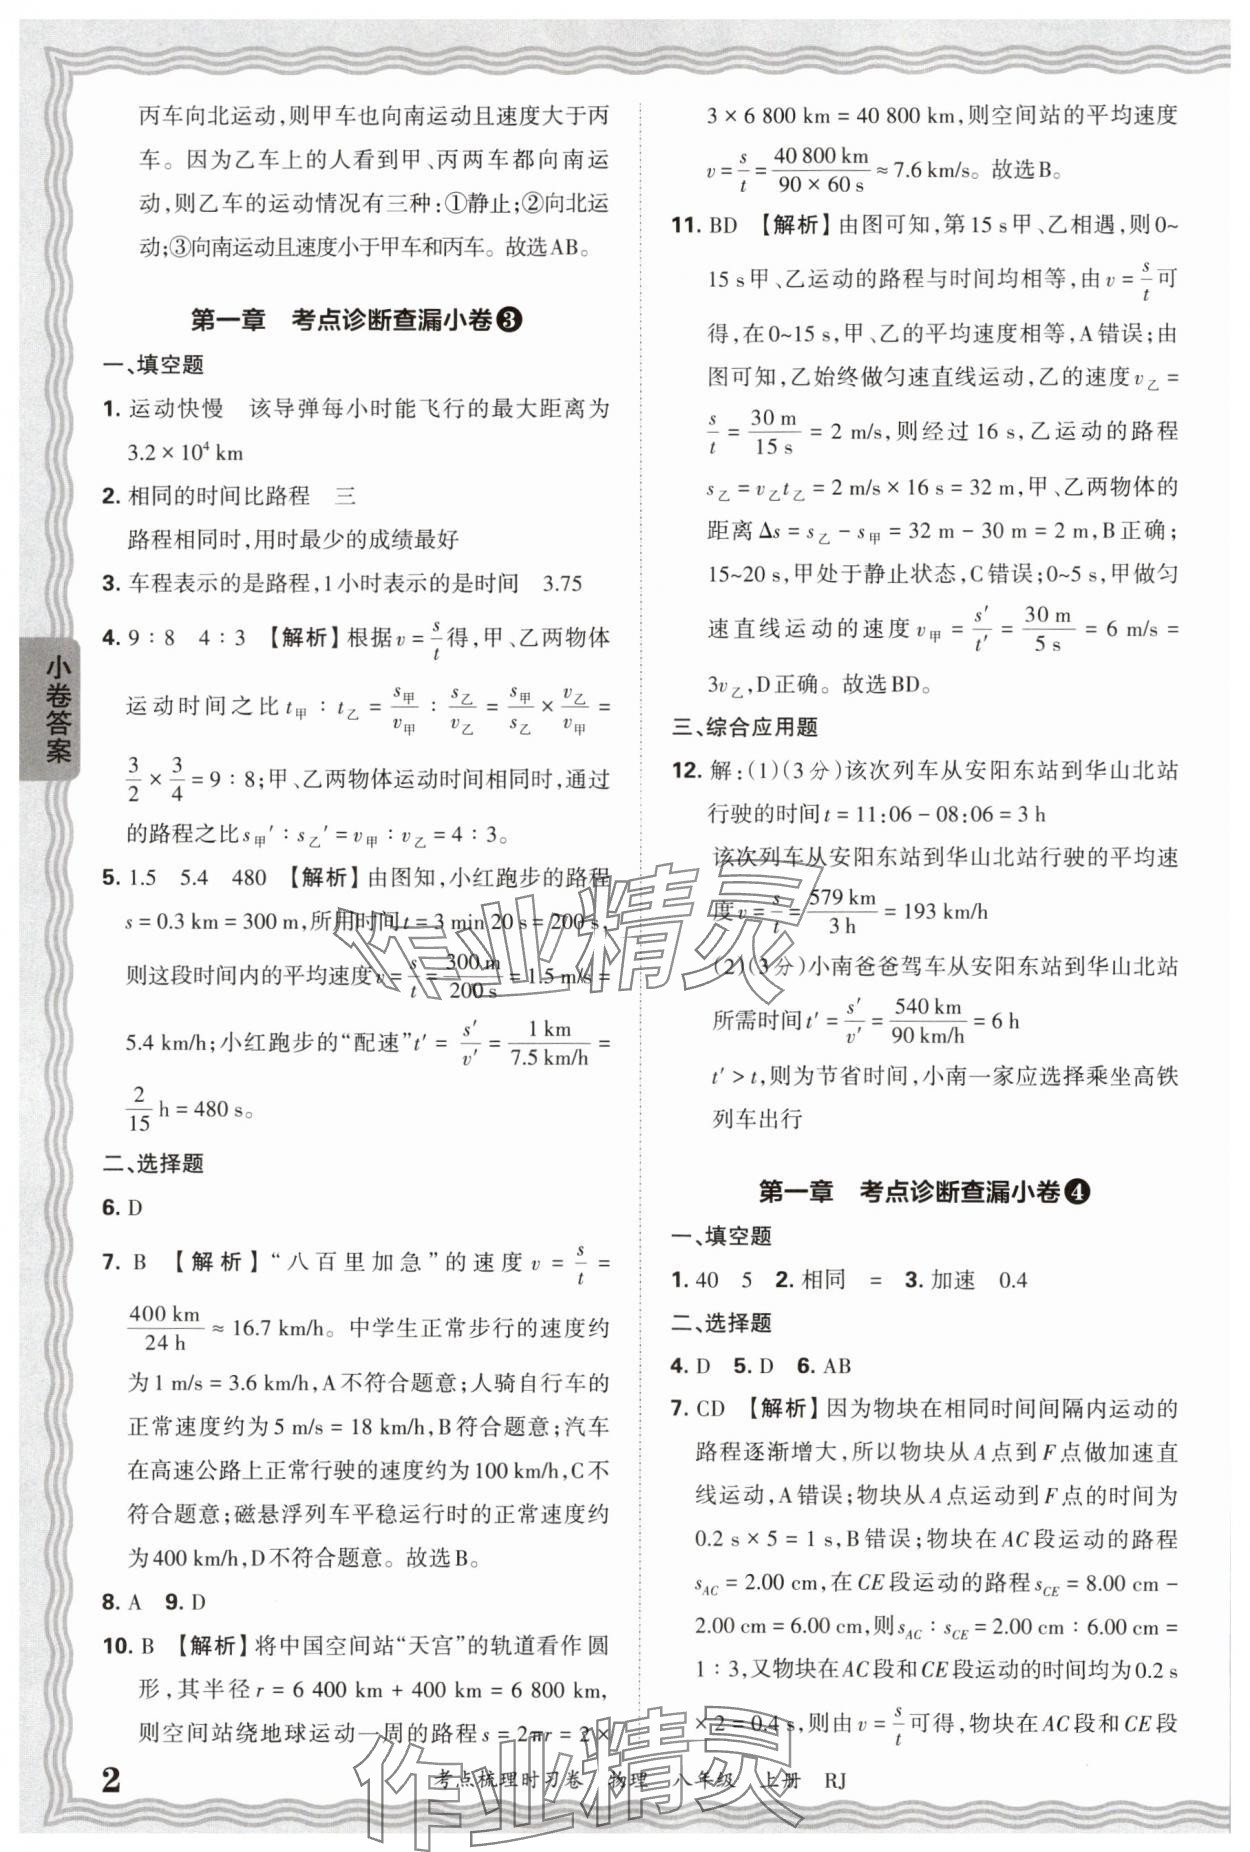 丙车向北运动,则甲车也向南运动且速度大于丙
车。因为乙车上的人看到甲、丙两车都向南运
动,则乙车的运动情况有三种:①静止;②向北运
动;③向南运动且速度小于甲车和丙车。故选AB。
第一章 考点诊断查漏小卷❸
一、填空题
1. 运动快慢 该导弹每小时能飞行的最大距离为
3.2 × 10⁴ km
2. 相同的时间比路程 三
路程相同时,用时最少的成绩最好
3. 车程表示的是路程,1小时表示的是时间 3.75
4. 9∶8 4∶3 【解析】根据v = s/t得,甲、乙两物体
运动时间之比t甲∶t乙 = s甲/v甲∶s乙/v乙 = s甲/s乙 × v乙/v甲 =
3/2 × 3/4 = 9∶8;甲、乙两物体运动时间相同时,通过
的路程之比s甲′∶s乙′ = v甲∶v乙 = 4∶3。
5. 1.5 5.4 480 【解析】由图知,小红跑步的路程
s = 0.3 km = 300 m,所用时间t = 3 min 20 s = 200 s,
则这段时间内的平均速度v = s/t = 300 m/200 s = 1.5 m/s =
5.4 km/h;小红跑步的“配速”t′ = s′/v′ = 1 km/7.5 km/h =
2/15 h = 480 s。
二、选择题
6. D
7. B 【解析】“八百里加急”的速度v = s/t =
400 km/24 h ≈ 16.7 km/h。中学生正常步行的速度约
为1 m/s = 3.6 km/h,A不符合题意;人骑自行车的
正常速度约为5 m/s = 18 km/h,B符合题意;汽车
在高速公路上正常行驶的速度约为100 km/h,C不
符合题意;磁悬浮列车平稳运行时的正常速度约
为400 km/h,D不符合题意。故选B。
8. A 9. D
10. B 【解析】将中国空间站“天宫”的轨道看作圆
形,其半径r = 6 400 km + 400 km = 6 800 km,
则空间站绕地球运动一周的路程s = 2πr = 2 ×
3 × 6 800 km = 40 800 km,则空间站的平均速度
v = s/t = 40 800 km/90 × 60 s ≈ 7.6 km/s。故选B。
11. BD 【解析】由图可知,第15 s甲、乙相遇,则0~
15 s甲、乙运动的路程与时间均相等,由v = s/t可
得,在0~15 s,甲、乙的平均速度相等,A错误;由
图可知,乙始终做匀速直线运动,乙的速度v乙 =
s/t = 30 m/15 s = 2 m/s,则经过16 s,乙运动的路程
s乙 = v乙t乙 = 2 m/s × 16 s = 32 m,甲、乙两物体的
距离Δs = s乙 − s甲 = 32 m − 30 m = 2 m,B正确;
15~20 s,甲处于静止状态,C错误;0~5 s,甲做匀
速直线运动的速度v甲 = s′/t′ = 30 m/5 s = 6 m/s =
3v乙,D正确。故选BD。
三、综合应用题
12. 解:(1)(3分)该次列车从安阳东站到华山北站
行驶的时间t = 11:06 − 08:06 = 3 h
该次列车从安阳东站到华山北站行驶的平均速
度v = s/t = 579 km/3 h = 193 km/h
(2)(3分)小南爸爸驾车从安阳东站到华山北站
所需时间t′ = s′/v′ = 540 km/90 km/h = 6 h
t′ > t,则为节省时间,小南一家应选择乘坐高铁
列车出行
第一章 考点诊断查漏小卷❹
一、填空题
1. 40 5 2. 相同 = 3. 加速 0.4
二、选择题
4. D 5. D 6. AB
7. CD 【解析】因为物块在相同时间间隔内运动的
路程逐渐增大,所以物块从A点到F点做加速直
线运动,A错误;物块从A点运动到F点的时间为
0.2 s × 5 = 1 s,B错误;物块在AC段运动的路程
sAC = 2.00 cm,在CE段运动的路程sCE = 8.00 cm −
2.00 cm = 6.00 cm,则sAC∶sCE = 2.00 cm∶6.00 cm =
1∶3,又物块在AC段和CE段运动的时间均为0.2 s
× 2 = 0.4 s,则由v = s/t可得,物块在AC段和CE段
小卷答案
2
考点梳理时习卷 物理 八年级 上册 RJ
作业精灵
作业精灵